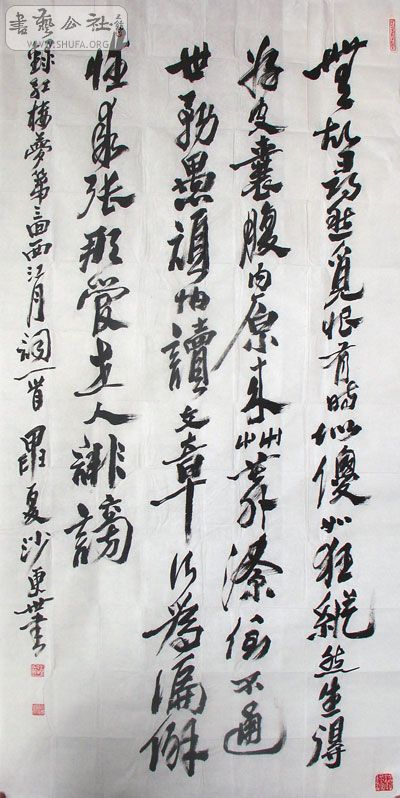 書藝公社
WWW.SHUFA.ORG
無故尋愁覓恨有時似傻如狂縱然生得
好皮囊腹内原來草莽潦倒不通
世務愚頑怕讀文章行為偏僻
性乖張那管世人誹謗
錄紅樓夢第三回西江月詞一首 夏沙更世書